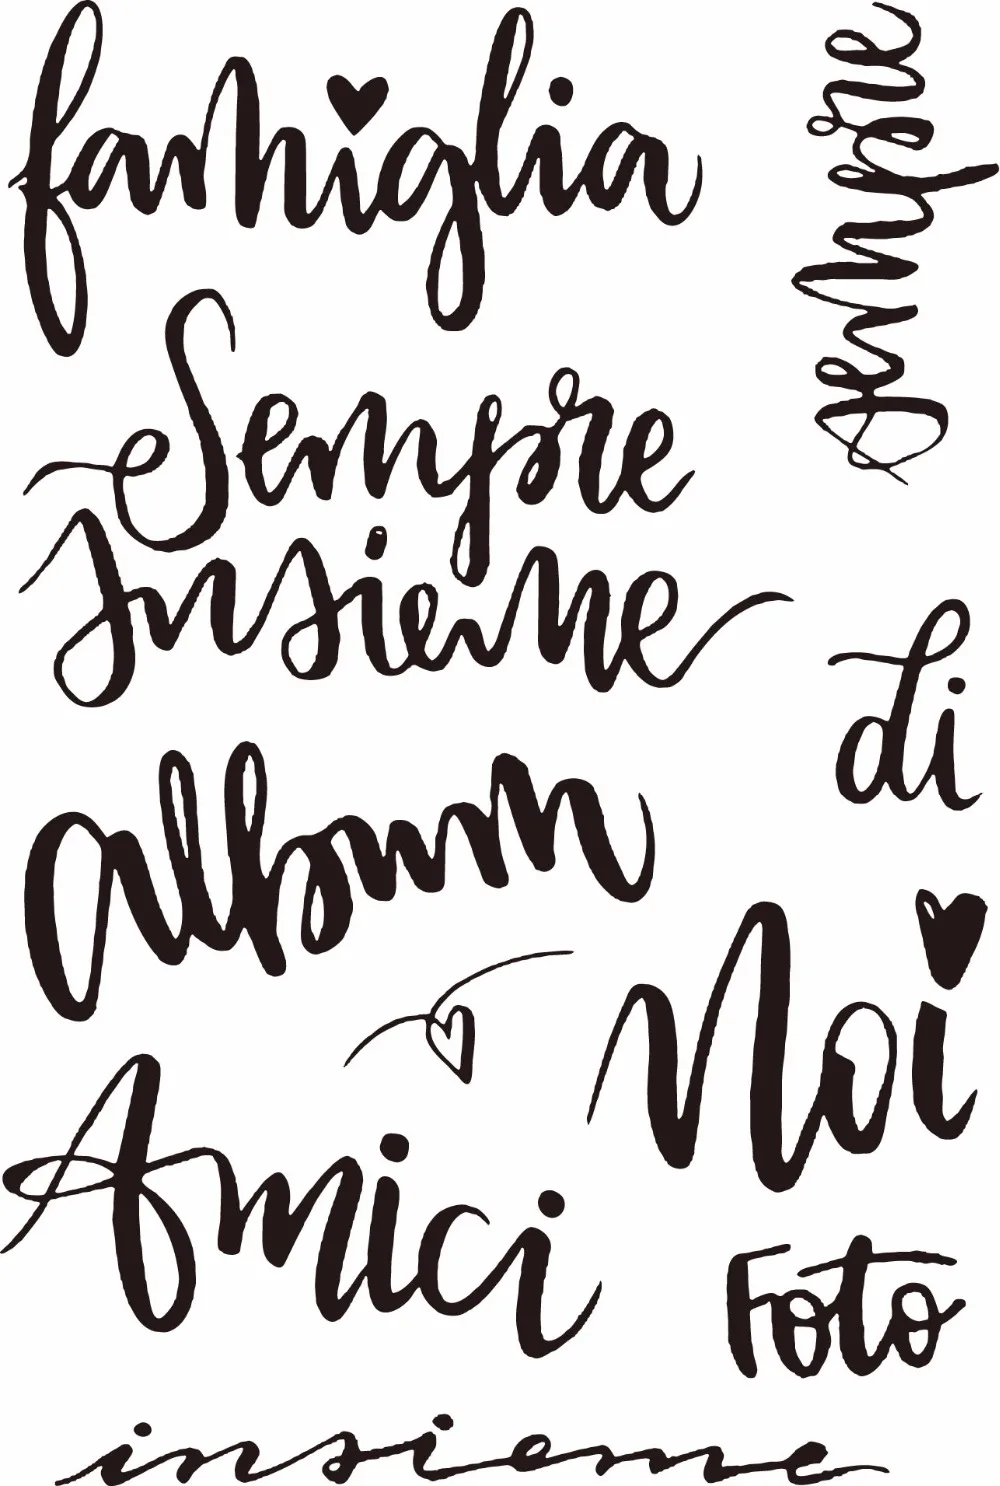 famiglia
sempre
Sempre
Insieme
di
album
Noi
Amici
Foto
insieme